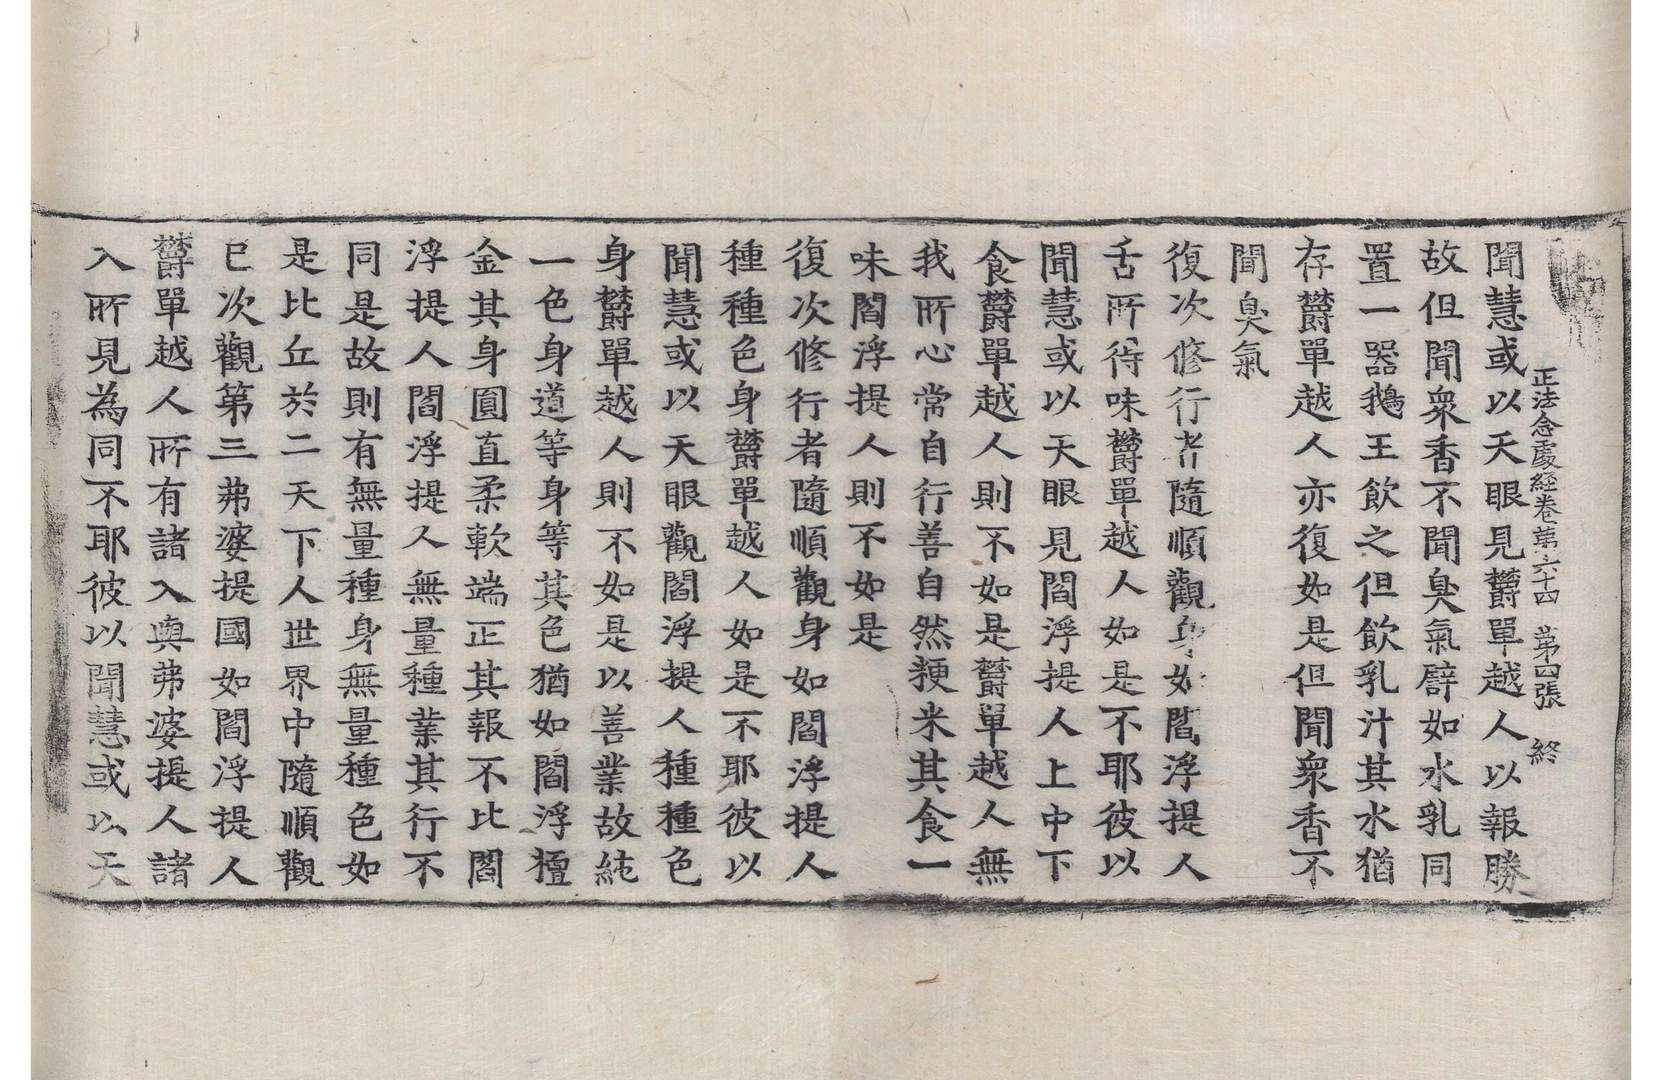 正法念處經卷第六十四 第四張 終
聞慧或以天眼見欝單越人以報勝
故但聞衆香不聞臭氣譬如水乳同
置一器鵝王飲之但飲乳汁其水猶
存欝單越人亦復如是但聞衆香不
聞臭氣
復次修行者隨順觀身如閻浮提人
舌所待味欝單越人如是不耶彼以
聞慧或以天眼見閻浮提人上中下
食欝單越人則不如是欝單越人無
我所心常自行善自然粳米其食一
味閻浮提人則不如是
復次修行者隨順觀身如閻浮提人
種種色身欝單越人如是不耶彼以
聞慧或以天眼觀閻浮提人種種色
身欝單越人則不如是以善業故純
一色身道等身等其色猶如閻浮檀
金其身圓直柔軟端正其報不比閻
浮提人閻浮提人無量種業其行不
同是故則有無量種身無量種色如
是比丘於二天下人世界中隨順觀
已次觀第三弗婆提國如閻浮提人
欝單越人所有諸入與弗婆提人諸
入所見為同不耶彼以聞慧或以天